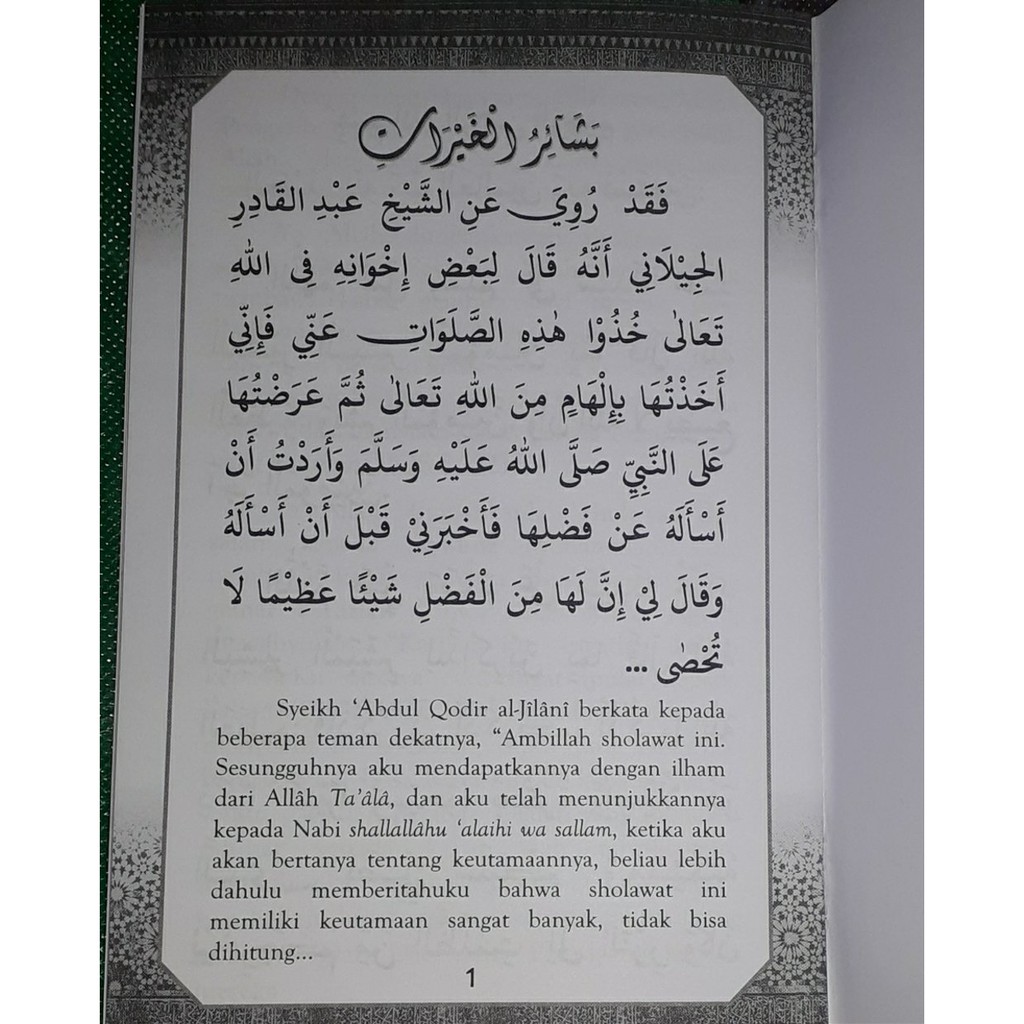 بَشَائِرُ الْخَيْرَاتِ
فَقَدْ رُوِيَ عَنِ الشَّيْخِ عَبْدِ القَادِرِ
الجِيْلَانِي أَنَّهُ قَالَ لِبَعْضِ إِخْوَانِهِ فِى اللهِ
تَعَالٰى خُذُوْا هٰذِهِ الصَّلَوَاتِ عَنِّي فَإِنِّي
أَخَذْتُهَا بِإِلْهَامٍ مِنَ اللهِ تَعَالٰى ثُمَّ عَرَضْتُهَا
عَلَى النَّبِيِّ صَلَّى اللهُ عَلَيْهِ وَسَلَّمَ وَأَرَدْتُ أَنْ
أَسْأَلَهُ عَنْ فَضْلِهَا فَأَخْبَرَنِيْ قَبْلَ أَنْ أَسْأَلَهُ
وَقَالَ لِيْ إِنَّ لَهَا مِنَ الْفَضْلِ شَيْئًا عَظِيْمًا لَا
تُحْصٰى ...
Syeikh ‘Abdul Qodir al-Jîlânî berkata kepada
beberapa teman dekatnya, “Ambillah sholawat ini.
Sesungguhnya aku mendapatkannya dengan ilham
dari Allâh Ta’âlâ, dan aku telah menunjukkannya
kepada Nabi shallallâhu ‘alaihi wa sallam, ketika aku
akan bertanya tentang keutamaannya, beliau lebih
dahulu memberitahuku bahwa sholawat ini
memiliki keutamaan sangat banyak, tidak bisa
dihitung...
1